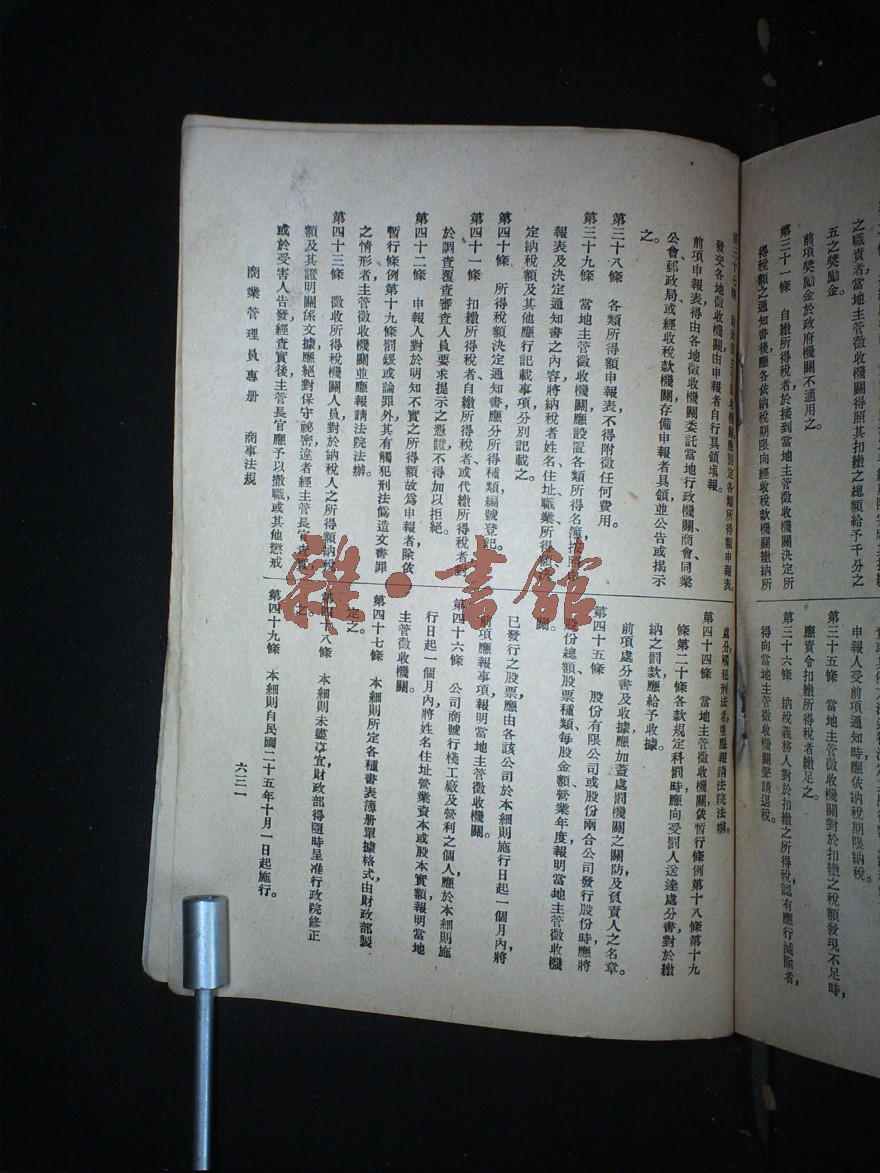 之職責者當地主管徵收機關得照其扣繳之總額給予千分之
五之獎勵金。
前項獎勵金於政府機關不適用之。
第三十一條　自繳所得稅者，於接到當地主管徵收機關決定所
得稅額之通知書後應各依納稅期限向經收稅款機關繳納所
申報人受前項通知時應依納稅期限納稅。
第三十五條　當地主管徵收機關對於扣繳之稅額發現不足時，
應責令扣繳所得稅者繳足之。
第三十六條　納稅義務人對於扣繳之所得稅認有應行減除者，
得向當地主管徵收機關聲請退稅。
各類所得額申報表，
發交各地徵收機關由申報者自行具領填報。
前項申報表得由各地徵收機關委託當地行政機關商會同業
公會郵政局或經收稅款機關存備申報者具領並公告或揭示
之。
第三十八條　各類所得額申報表不得附徵任何費用。
第三十九條　當地主管徵收機關應設置各類所得名簿，
報表及決定通知書之內容將納稅者姓名住址職業所得
定納稅額及其他應行記載事項分別記載之。
第四十條　所得稅額決定通知書應分所得種類編號登記。
第四十一條　扣繳所得稅者自繳所得稅者或代繳所得稅者
於調查覆查審查人員要求提示之憑證不得加以拒絕。
第四十二條　申報人對於明知不實之所得額故爲申報者除依
暫行條例第十九條罰鍰或論罪外其有觸犯刑法僞造文書罪
之情形者主管徵收機關並應報請法院法辦。
第四十三條　徵收所得稅機關人員對於納稅人之所得額納稅
額及其證明關係文據應絕對保守祕密違者經主管長官查
或於受害人告發經查實後，主管長官應予以撤職或其他懲戒
處分，觸犯刑法者，並應報請法院法辦。
第四十四條　當地主管徵收機關，依暫行條例第十八條第十九
條第二十條各款規定科罰時應向受罰人送達處分書對於繳
納之罰款應給予收據。
前項處分書及收據應加蓋處罰機關之關防及負責人之名章。
第四十五條　股份有限公司或股份兩合公司發行股份時應將
股份總額股票種類每股金額營業年度報明當地主管徵收機
關。
已發行之股票應由各該公司於本細則施行日起一個月內，將
前項應報事項，報明當地主管徵收機關。
第四十六條　公司商號行棧工廠及營利之個人應於本細則施
行日起一個月內，將姓名住址營業資本或股本實額報明當地
主管徵收機關。
第四十七條　本細則所定各種書表簿册單據格式由財政部製
定之。
第四十八條　本細則未盡事宜財政部得隨時呈准行政院修正
之。
第四十九條　本細則自民國二十五年十月一日起施行。
商業管理員專册　商事法規
六三一
雜·書館